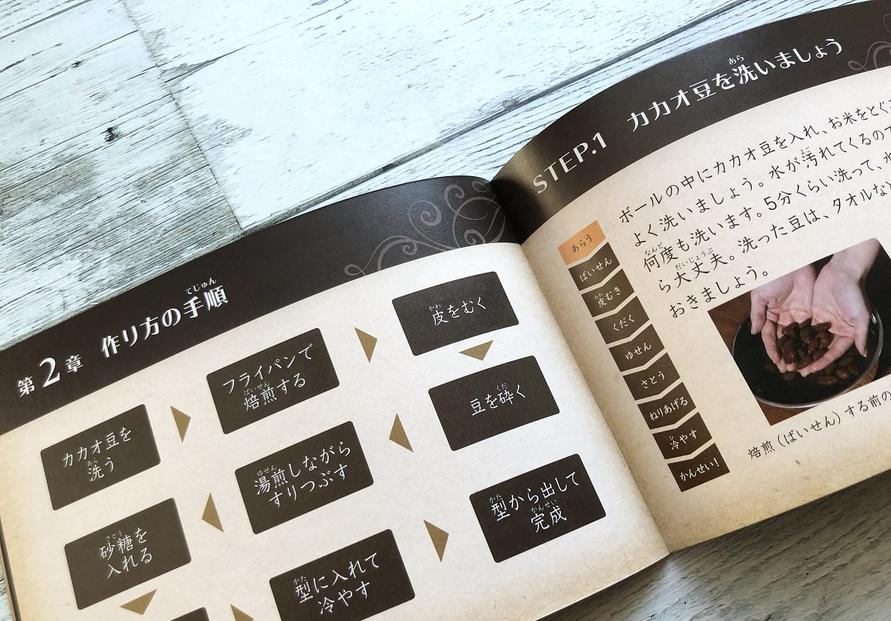 第2章 作り方の手順
カカオ豆を
洗う
フライパンで
焙煎する
皮をむく
豆を砕く
湯煎しながら
すりつぶす
砂糖を
入れる
型に入れて
冷やす
型から出して
完成
STEP.1 カカオ豆を洗いましょう
ボールの中にカカオ豆を入れ、お米をとぐ
よく洗いましょう。水が汚れてくるの
何度も洗います。5分くらい洗って、
ら大丈夫。洗った豆は、タオルな
おきましょう。
あらう
ばいせん
皮むき
くだく
ゆせん
さとう
ねりあげる
冷やす
かんせい!
焙煎(ばいせん)する前の